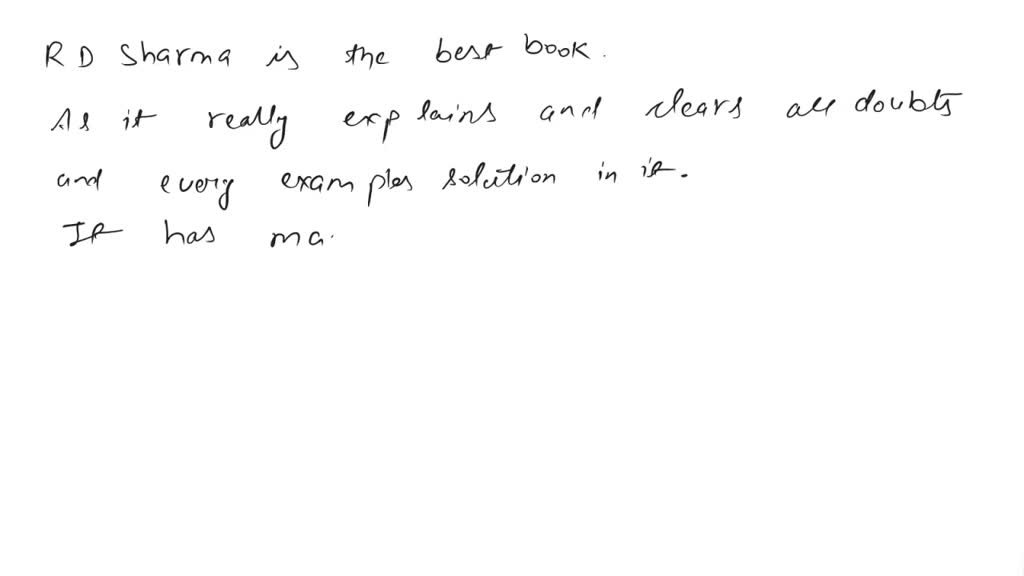 RD Sharma is the best book.
As it really explains and clears all doubts
and every examples solution in it.
It has ma